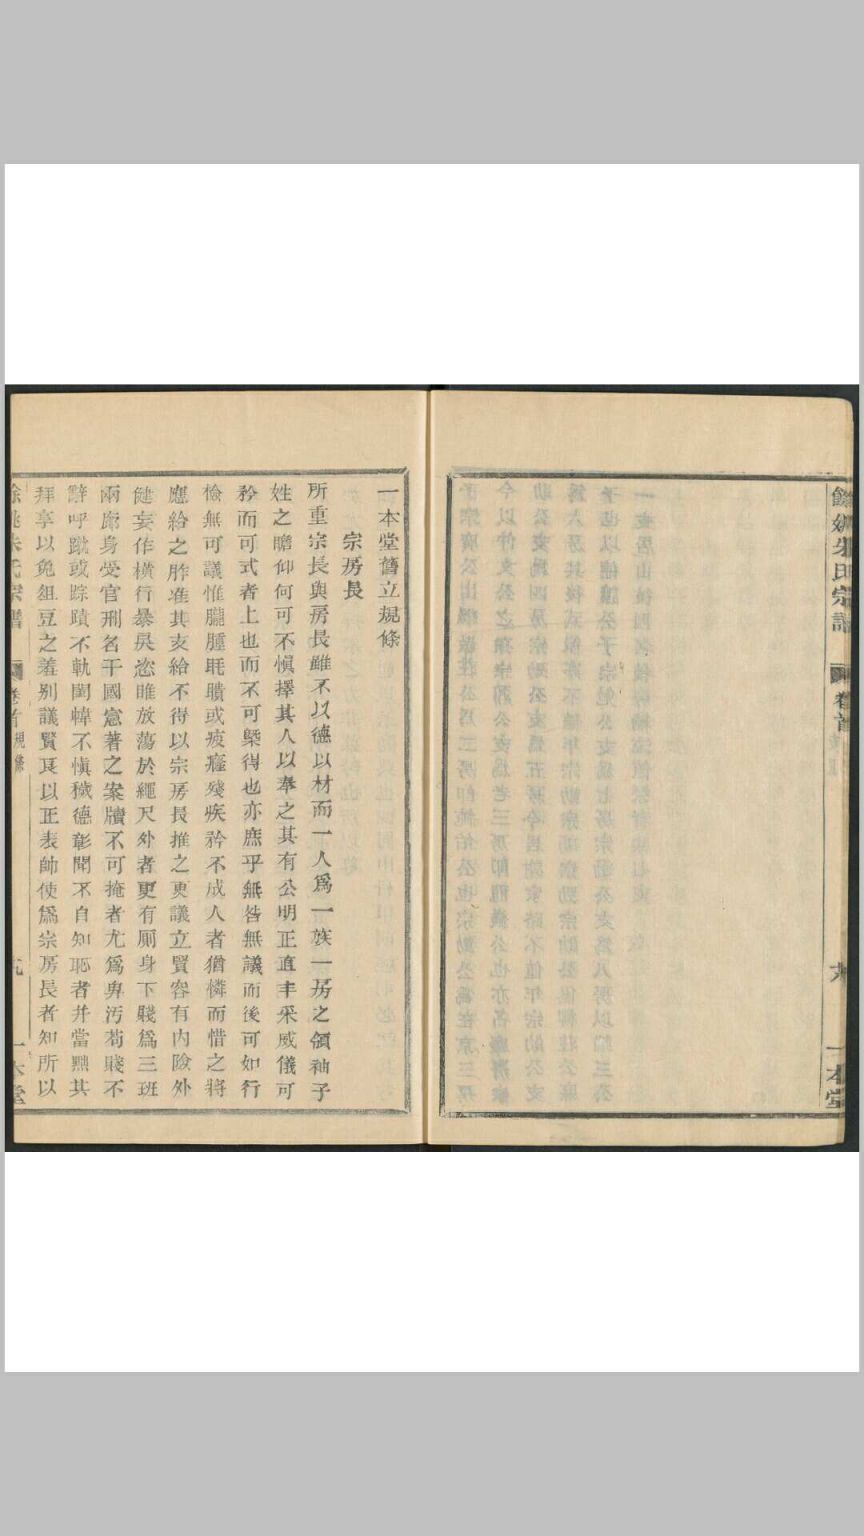 餘姚朱氏宗譜
卷首
一本堂
一本堂舊立規條
宗房長
所重宗長與房長雖不以德以材而一人爲一族一房之領袖子
姓之瞻仰何可不愼擇其人以奉之其有公明正直丰采威儀可
矜而可式者上也而不可槩得也亦庶乎無咎無議而後可如行
檢無可議惟龍腫耗聵或疲癃殘疾矜不成人者猶憐而惜之將
應給之胙准其支給不得以宗房長推之更議立賢容有內險外
健妄作橫行暴戾恣睢放蕩於繩尺外者更有厠身下賤爲三班
兩廊身受官刑名干國憲著之案牘不可掩者尤爲卑污苟賤不
辭呼蹴或踪蹟不軌閨幃不愼穢德彰聞不自知耻者并當黜其
拜享以免俎豆之羞别議賢員以正表帥使爲宗房長者知所以
餘姚朱氏宗譜
卷首
規條
九
一本堂